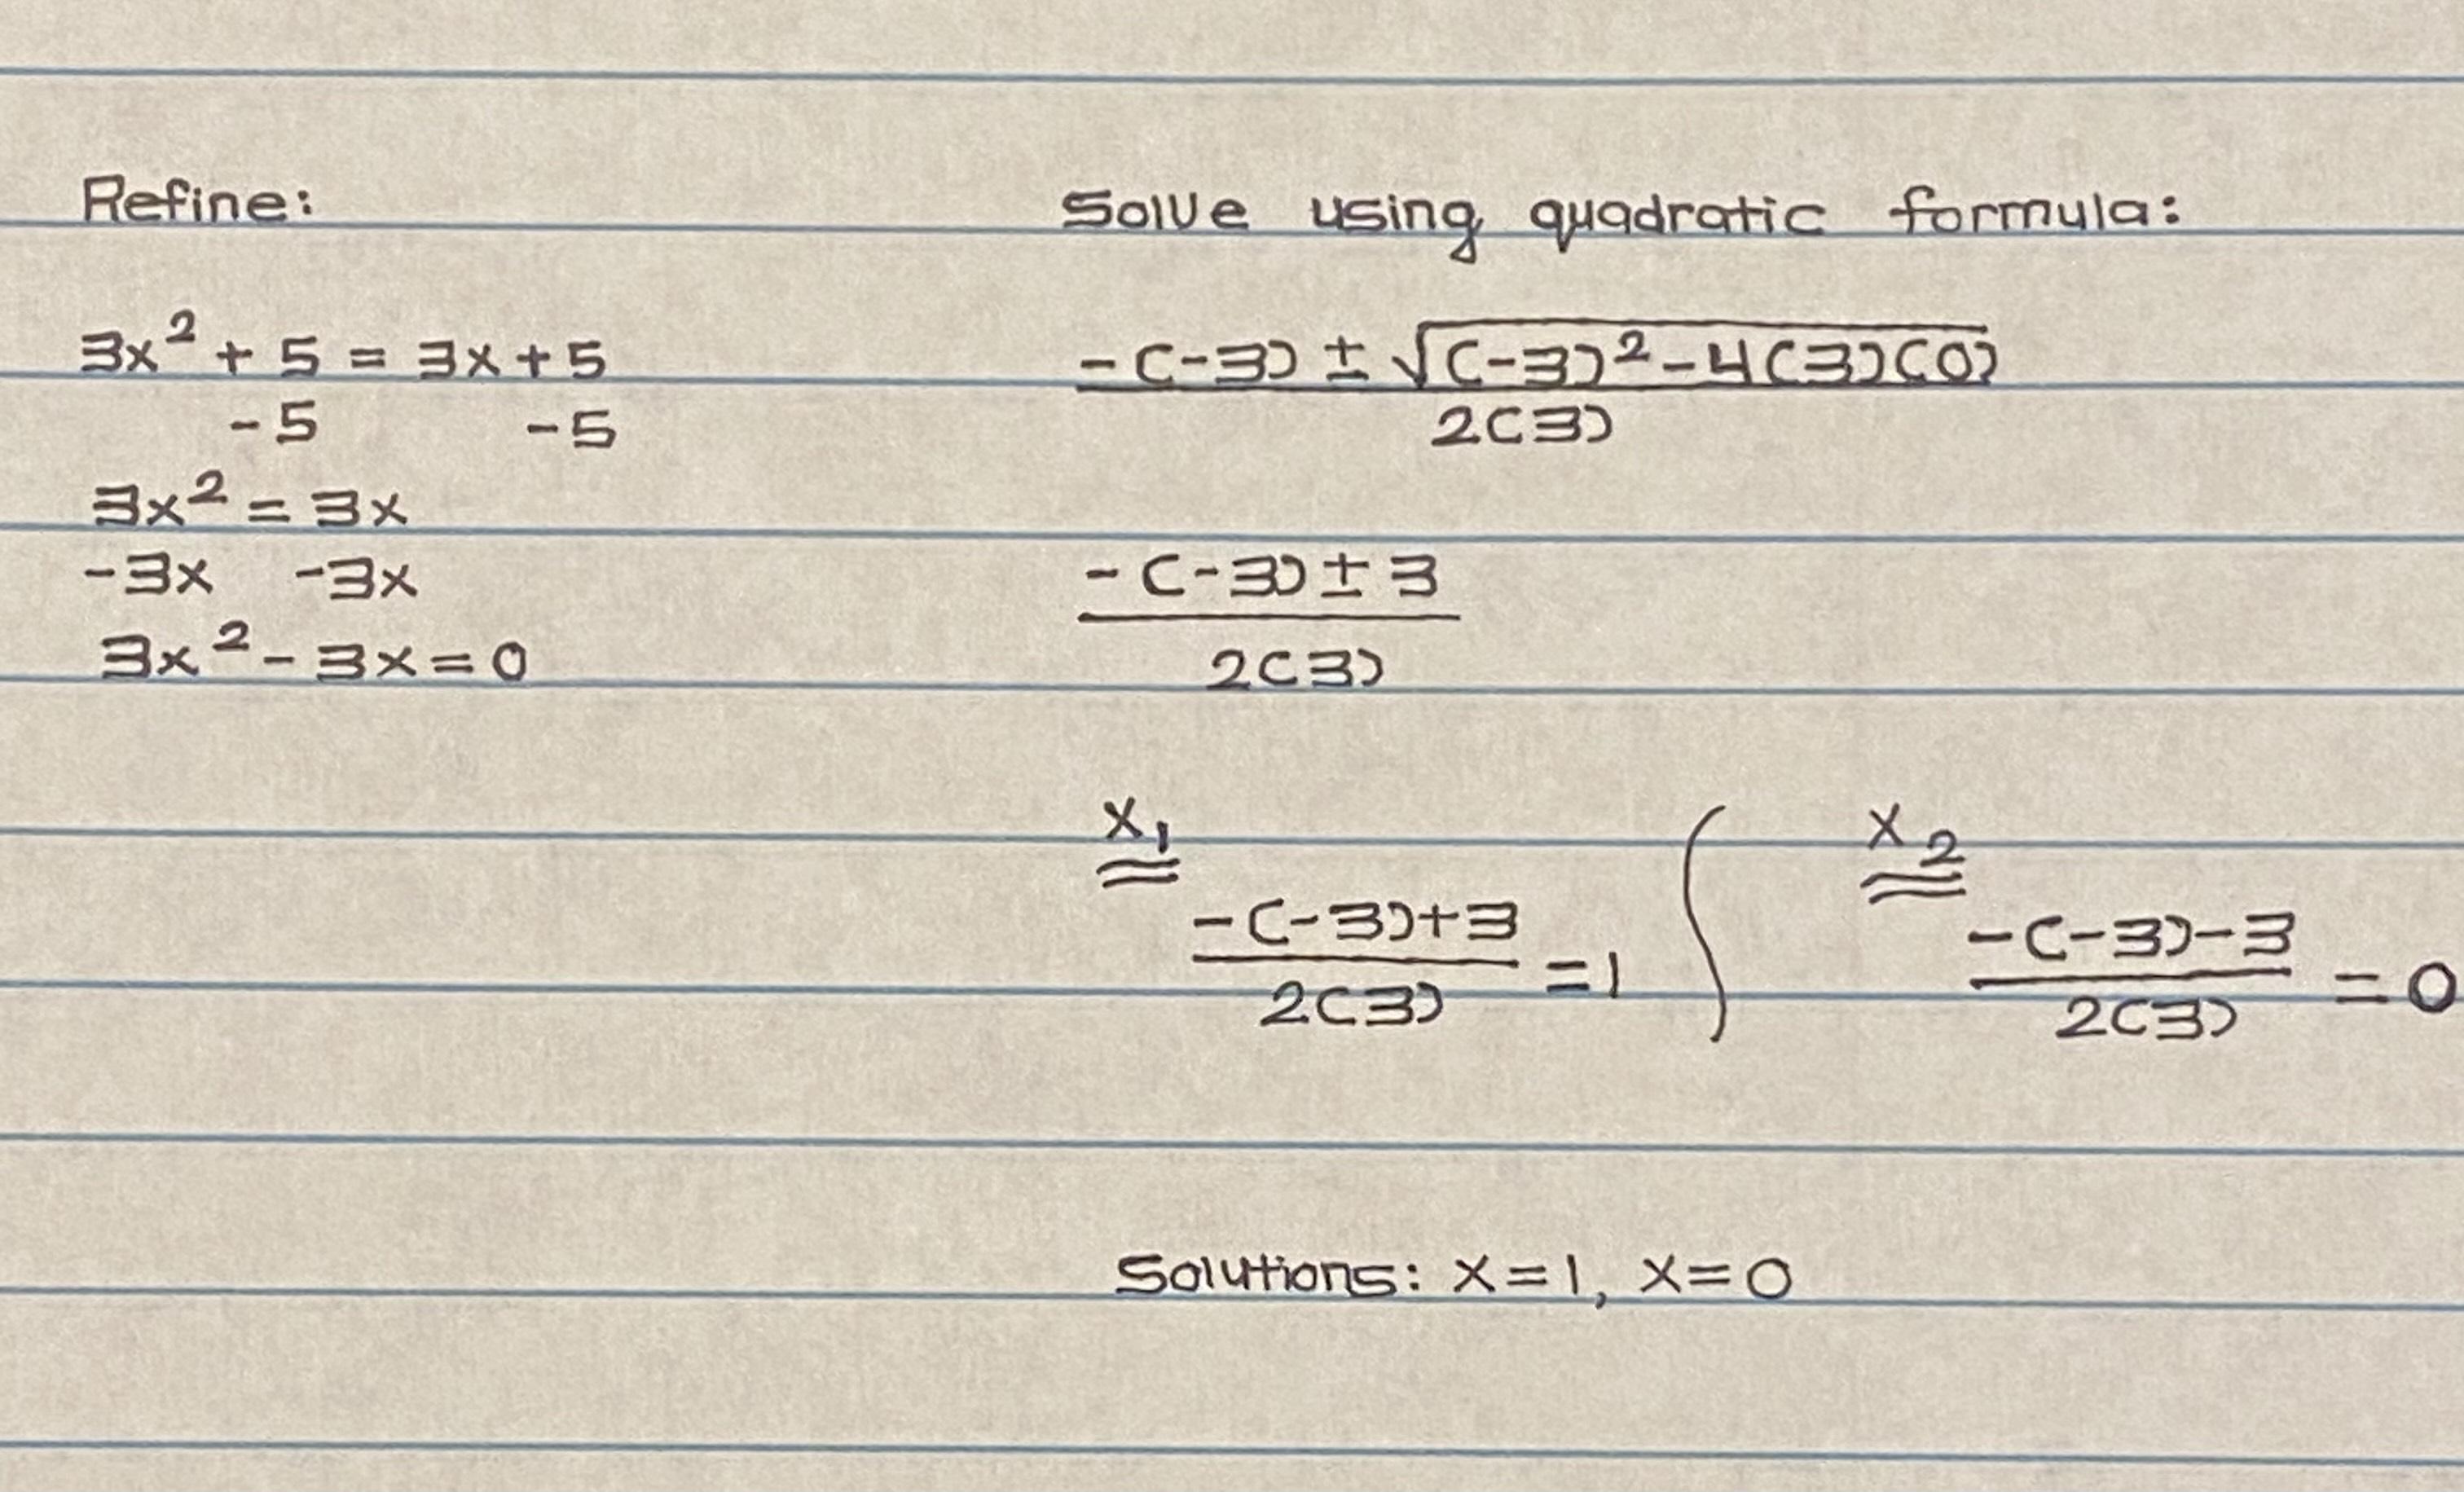 Refine:
3x² + 5 = 3x + 5
-5 -5
3x² = 3x
-3x -3x
3x² - 3x = 0
Solve using quadratic formula:
-(-3) ± √(-3)² - 4(3)(0)
2(3)
-(-3) ± 3
2(3)
x₁
-(-3)+3
2(3)
=1
x₂
-(-3)-3
2(3)
=0
Solutions: x=1, x=0